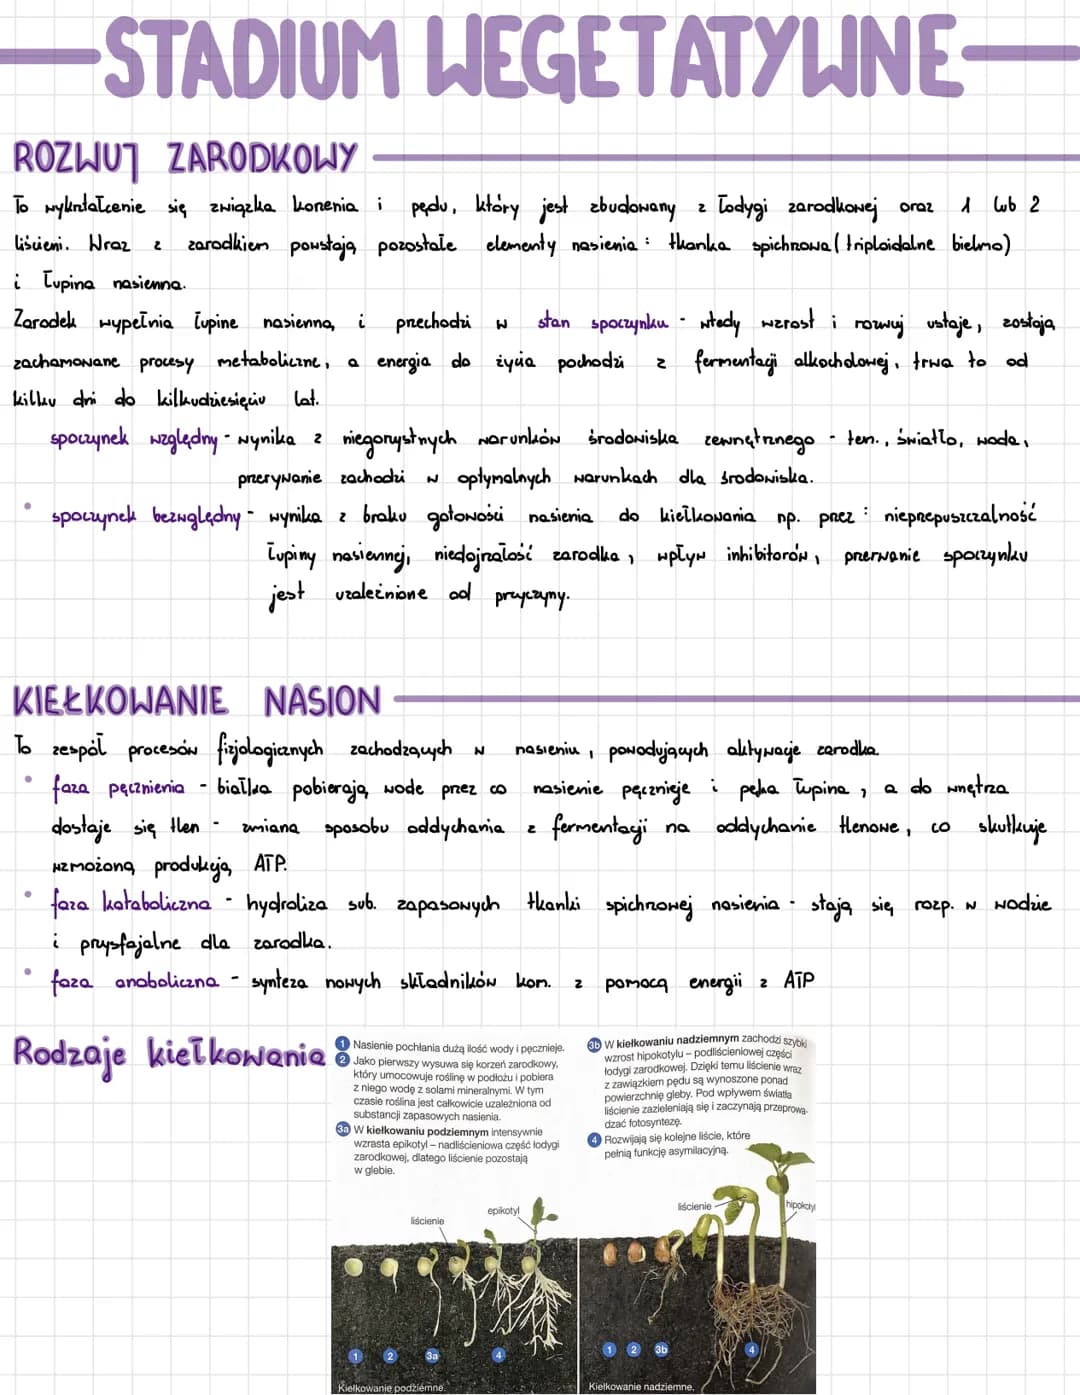 STADIUM WEGETATYWNE
ROZWÓJ ZARODKOWY
To wykształcenie się związka korzenia i pędu, który jest zbudowany z łodygi zarodkowej oraz 1 lub 2
liścieni. Wraz z zarodkiem powstają pozostałe elementy nasienia : tkanka spichrzowa ( triploidalne bielmo)
i łupina nasienna.
Zarodek wypełnia łupine nasienną i przechodzi w stan spoczynku - wtedy wzrost i rozwój ustaje, zostają
zachamowane procesy metaboliczne, a energia do życia pochodzi z fermentacji alkocholowej, trwa to od
kilku dni do kilkudziesięciu lat.
spoczynek względny - wynika z niegorystnych warunków środowiska zewnętrznego - tem., światło, woda,
przerywanie zachodzi w optymalnych warunkach dla środowiska.
• spoczynek bezwględny - wynika z braku gotowości nasienia do kiełkowania np. przez : nieprzepuszczalność
łupiny nasiennej, niedojrzałość zarodka, wpływ inhibitorów, przerwanie spoczynku
jest uzależnione od przyczyny.
KIEŁKOWANIE NASION
To zespół procesów fizjologicznych zachodzących w nasieniu, powodujących aktywacje zarodka.
• faza pęcznienia - białka pobierają wode przez co nasienie pęcznieje i pęka łupina, a do wnętrza
dostaje się tlen - zmiana sposobu oddychania z fermentacji na oddychanie tlenowe, co skutkuje
wzmożoną produkcją ATP.
• faza kataboliczna - hydroliza sub. zapasowych tkanki spichrzowej nasienia - stają się rozp. w wodzie
i przysfajalne dla zarodka.
• faza anaboliczna - synteza nowych składników kom. z pomocą energii z ATP
Rodzaje kiełkowania
1 Nasienie pochłania dużą ilość wody i pęcznieje.
2 Jako pierwszy wysuwa się korzeń zarodkowy,
który umocowuje roślinę w podłożu i pobiera
z niego wodę z solami mineralnymi. W tym
czasie roślina jest całkowicie uzależniona od
substancji zapasowych nasienia.
3a W kiełkowaniu podziemnym intensywnie
wzrasta epikotyl – nadliścieniowa część łodygi
zarodkowej, dlatego liścienie pozostają
w glebie.
3b W kiełkowaniu nadziemnym zachodzi szybki
wzrost hipokotylu – podliścieniowej części
łodygi zarodkowej. Dzięki temu liścienie wraz
z zawiązkiem pędu są wynoszone ponad
powierzchnię gleby. Pod wpływem światła
liścienie zazieleniają się i zaczynają przeprowa-
dzać fotosyntezę.
4 Rozwijają się kolejne liście, które
pełnią funkcję asymilacyjną.
liścienie
epikotyl
1 2 3a 4
Kiełkowanie podziemne.
liścienie
hipokotyl
1 2 3b 4
Kiełkowanie nadziemne.